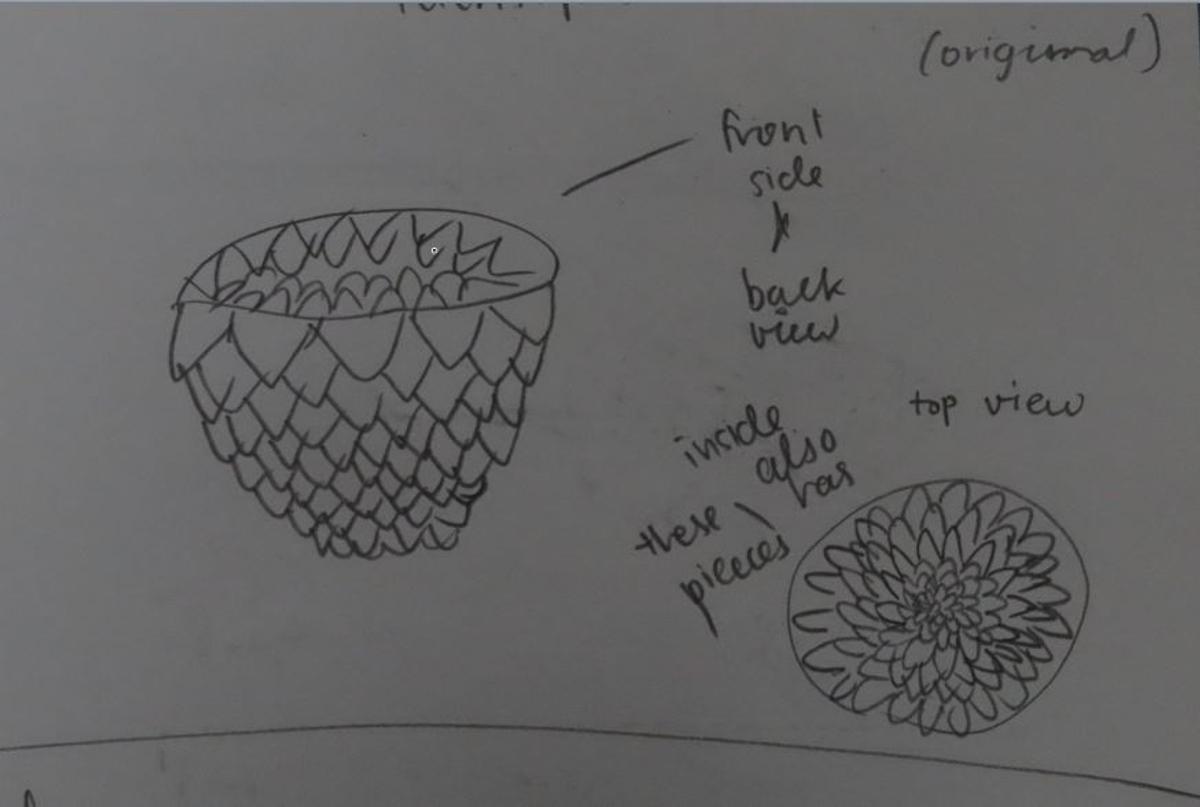 (original)
front
side
&
back
view
top view
inside
also
has
these
pieces